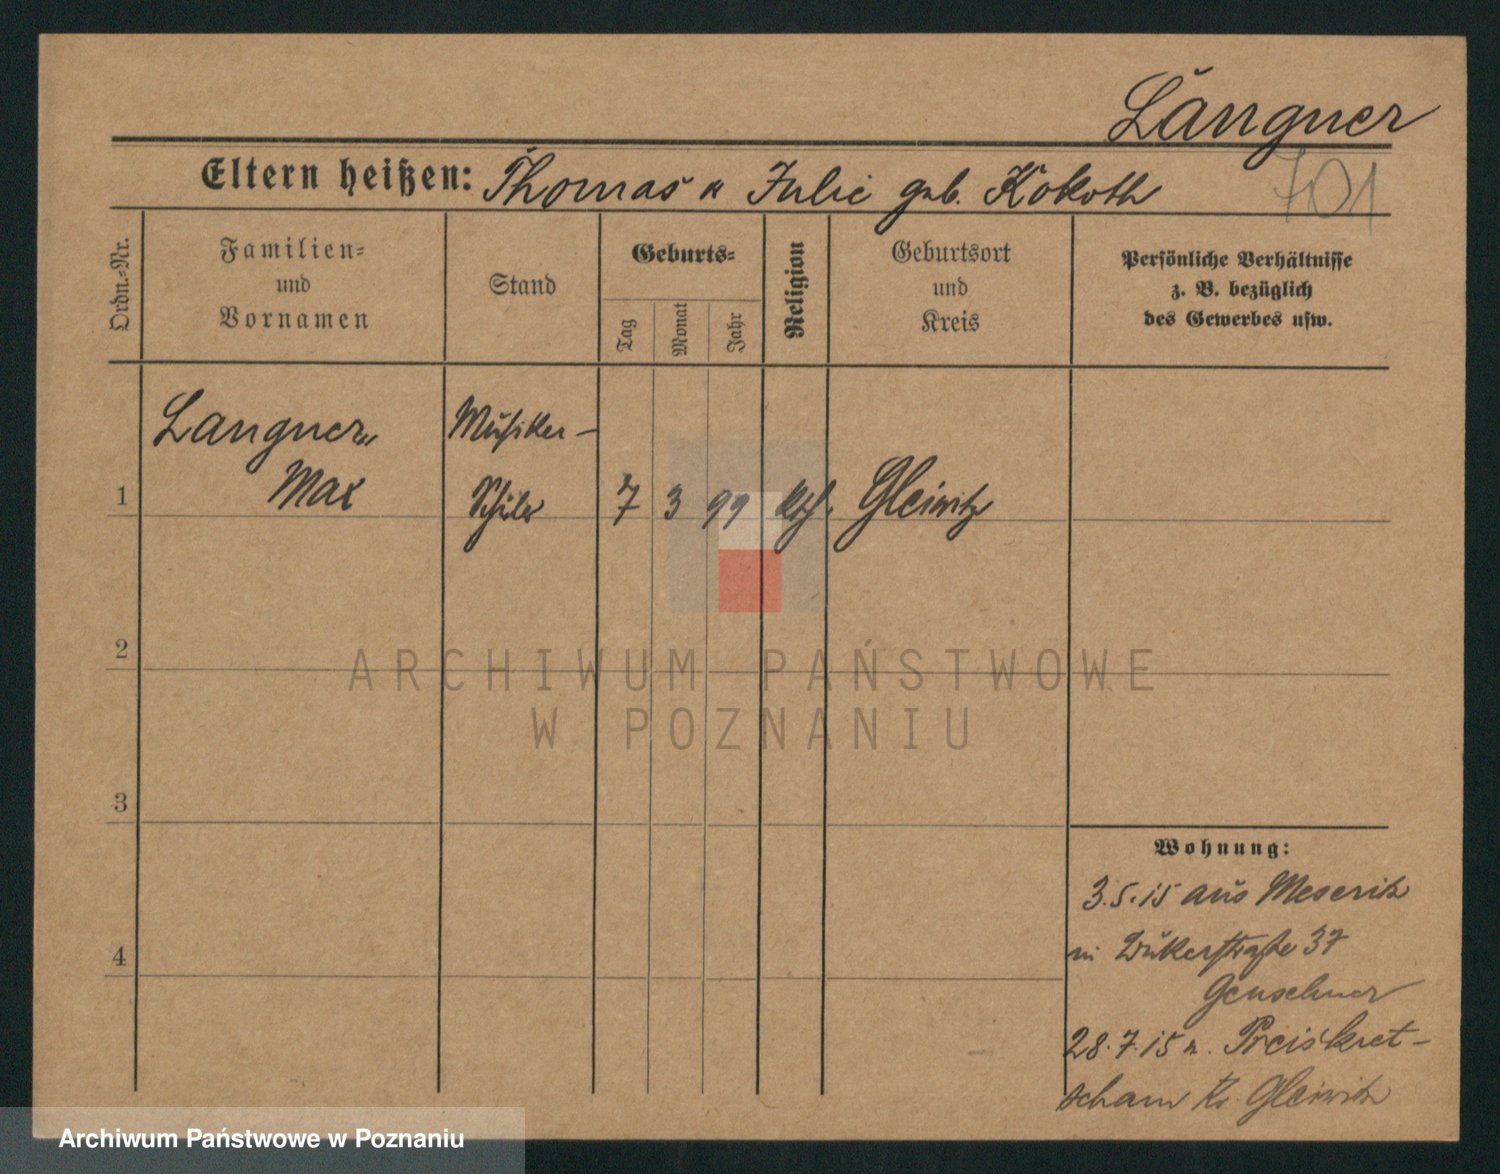 Längner
701
Eltern heißen: Thomas u Julie geb. Kokoth
Ordn.=Nr.
Familien=
und
Vornamen
Stand
Geburts=
Tag
Monat
Jahr
Religion
Geburtsort
und
Kreis
Persönliche Verhältnisse
z. B. bezüglich
des Gewerbes usw.
Langner
Musiker-
1
Max
Schüler
7
3
99
kth.
Gleiwitz
2
ARCHIWUM PAŃSTWOWE
W POZNANIU
3
Wohnung:
3.5.15 aus Meseritz
in 37
4
Genschmer
28.7.15 n. Preiskret-
scham Kr. Gleiwitz
Archiwum Państwowe w Poznaniu